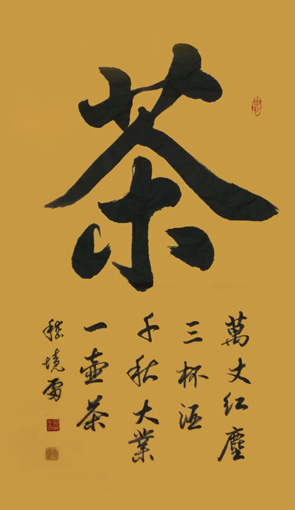 茶
萬丈紅塵
三杯酒
千秋大業
一壺茶